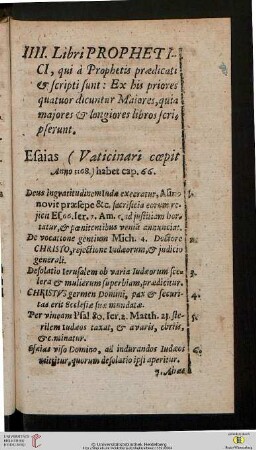 IIII. Libri PROPHETI-
CI, qui à Prophetis prædicati
& scripti sunt: Ex his priores
quatuor dicuntur Maiores, quia
majores & longiores libros scri-
pserunt.
Esaias (Vaticinari cœpit
Anno 1108.) habet cap. 66.
Deus ingratitudinem Iudæ execratur, Asinus
novit præsepe &c. sacrificia eorum re-
jicit Es. 66. Ier. 7. Am. 5. ad justitiam hor-
tatur, & pœnitentibus veniā annunciat.
De vocatione gentium Mich. 4. Doctore 2.
CHRISTO, rejectione Iudæorum, & judicio
generali.
Desolatio Ierusalem ob varia Iudæorum sce- 3.
lera & mulierum superbiam, prædicitur.
CHRISTVS germen Domini, pax & securi- 4.
tas erit Ecclesiæ suæ mundatæ.
Per vineam Psal 80. Ier. 2. Matth. 21. ste- 5.
rilem Iudæos taxat, & avaris, ebriis,
&c. minatur.
Esaias viso Domino, ad indurandos Iudæos 6.
mittitur, quorum desolatio ipsi aperitur.
7. Achas
UNIVERSITÄTS-
BIBLIOTHEK
HEIDELBERG
© Universitätsbibliothek Heidelberg
Baden-Württemberg